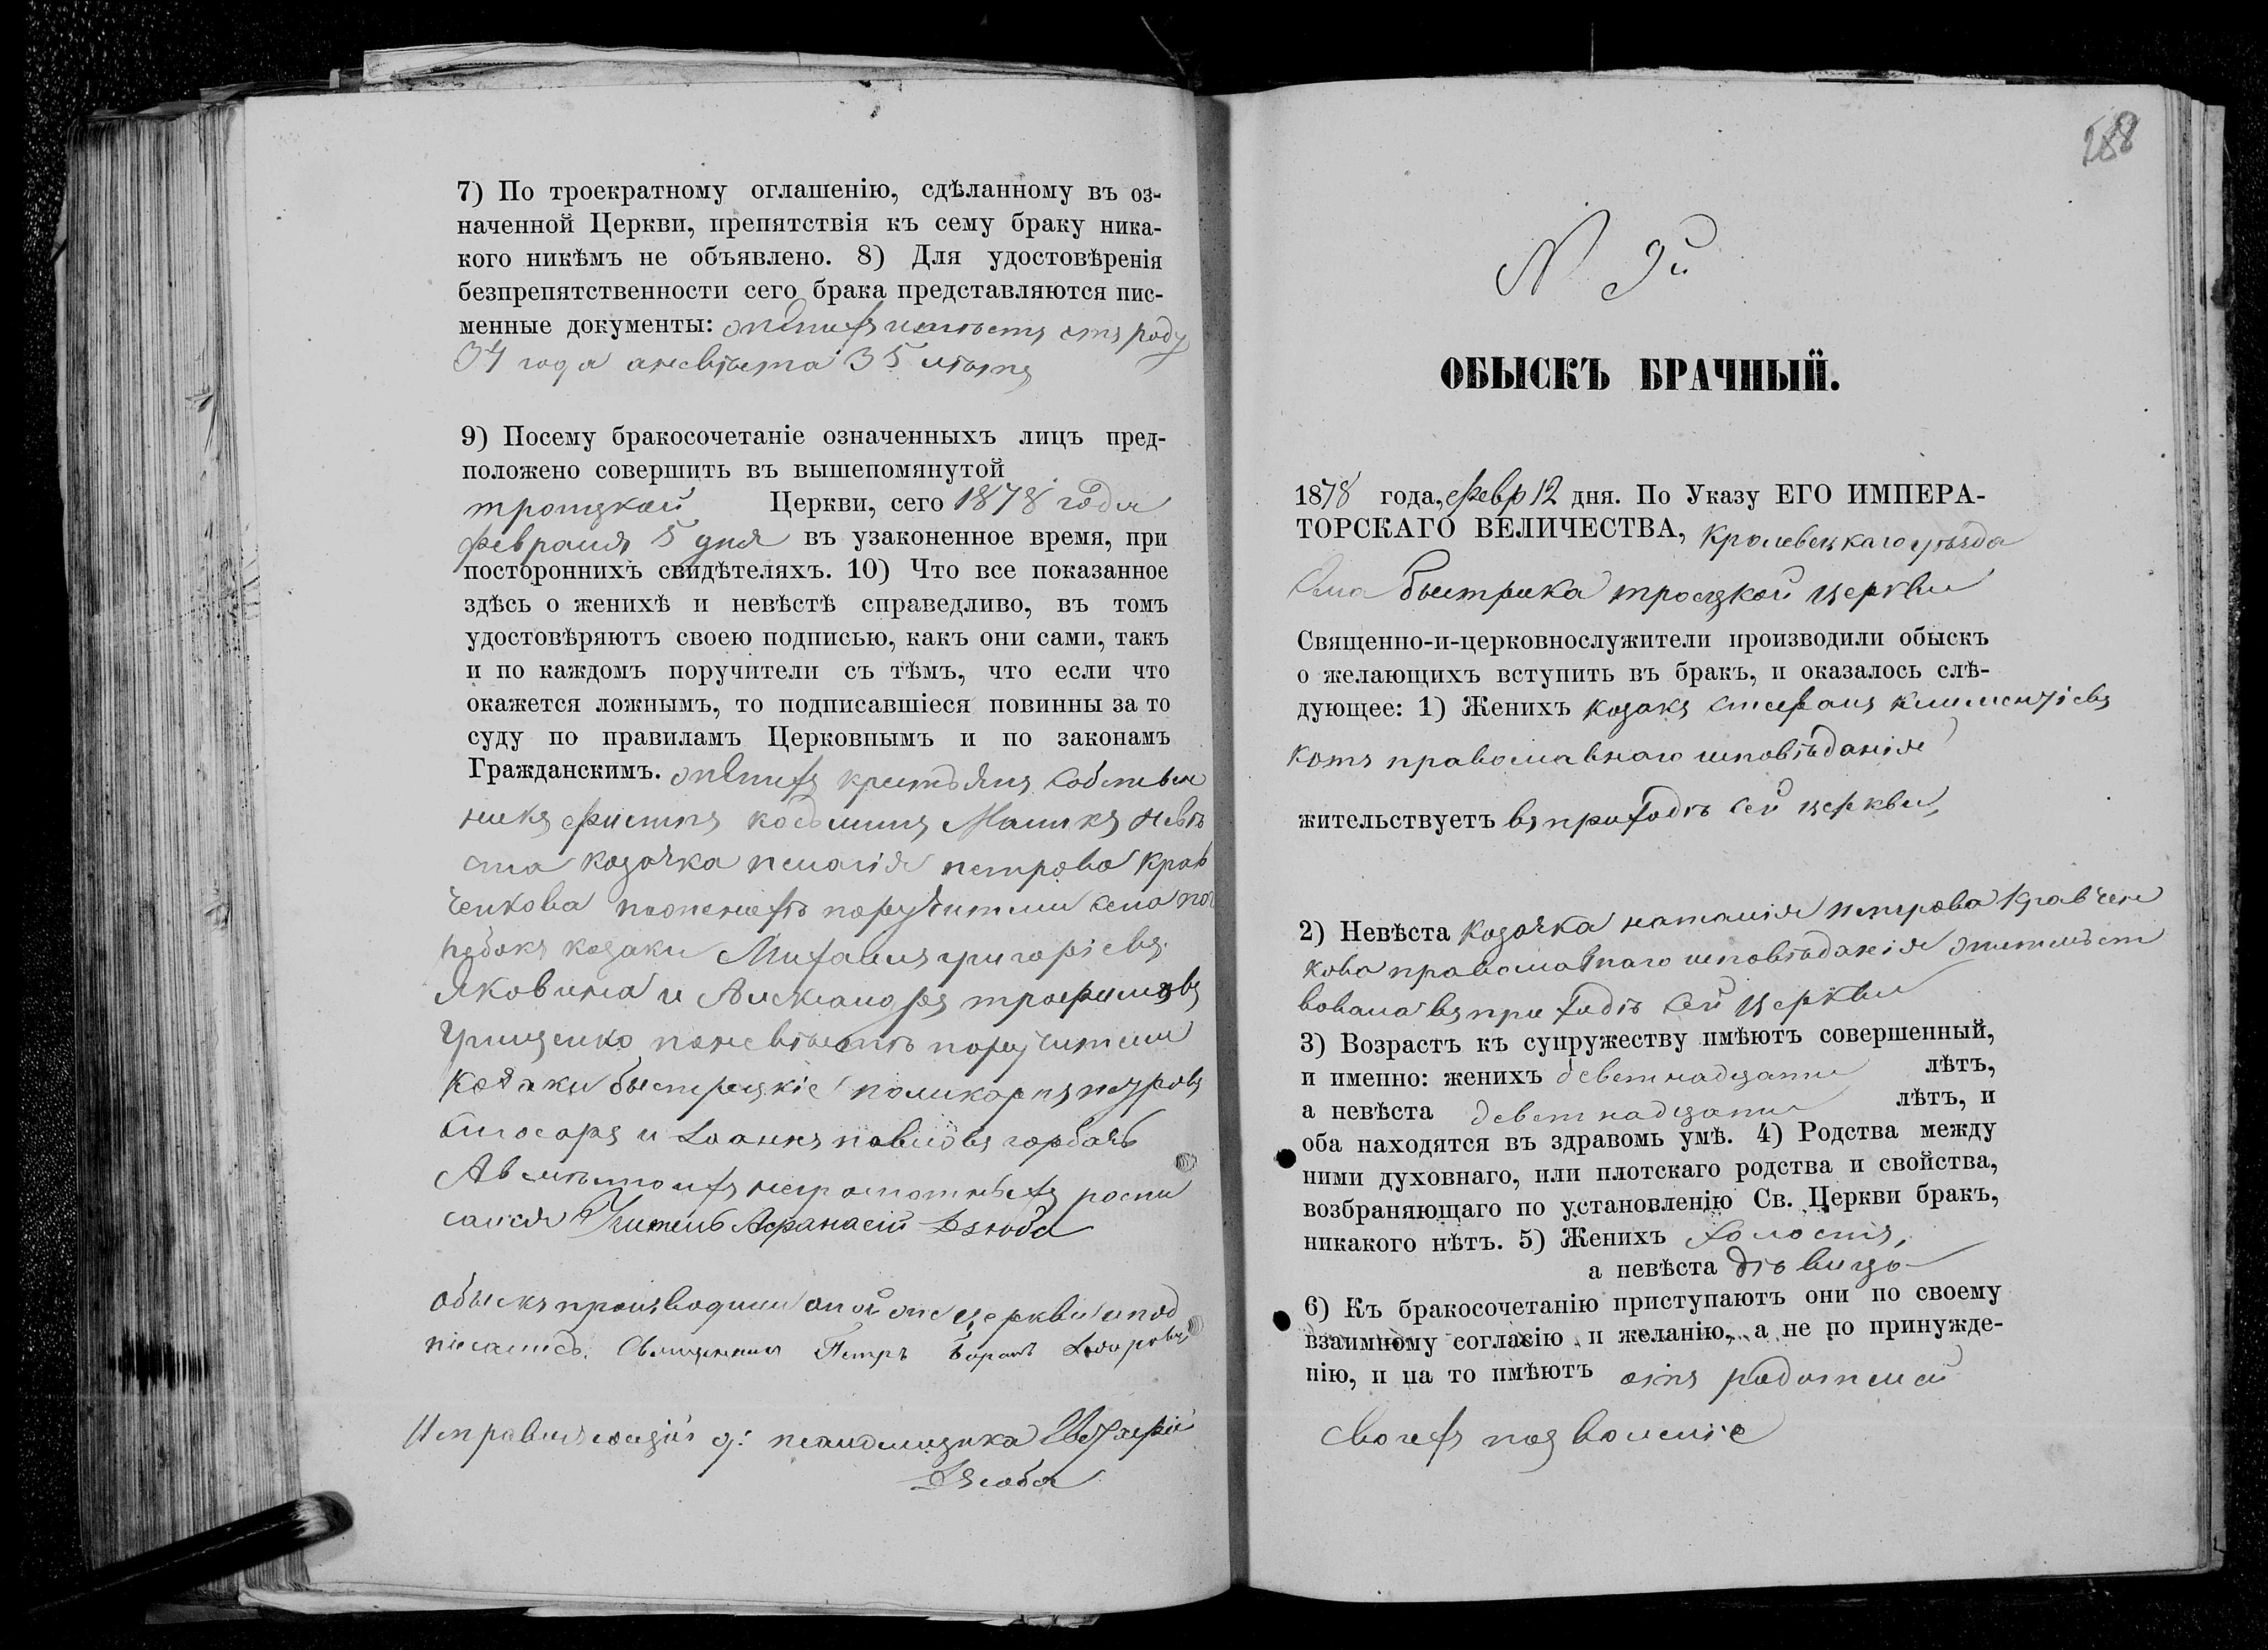 7) По троекратному оглашенію, сдѣланному въ оз-
наченной Церкви, препятствія къ сему браку ника-
кого никѣмъ не объявлено. 8) Для удостовѣренія
безпрепятственности сего брака представляются пис-
менные документы: отъ роду
34 года а невѣста 35 лѣтъ
9) Посему бракосочетаніе означенныхъ лицъ пред-
положено совершить въ вышепомянутой
троицкой Церкви, сего 1878 года
февраля 5 дня въ узаконенное время, при
постороннихъ свидѣтеляхъ. 10) Что все показанное
здѣсь о женихѣ и невѣстѣ справедливо, въ томъ
удостовѣряютъ своею подписью, какъ они сами, такъ
и по каждомъ поручители съ тѣмъ, что если что
окажется ложнымъ, то подписавшіеся повинны за то
суду по правиламъ Церковнымъ и по законамъ
Гражданскимъ. собствен
никъ невѣ
ста козачка пелагія петрова Крав
ченкова по женихѣ поручители села
козаки Михаилъ григоріевъ
Яковина и Александръ трофимовъ
Грищенко по невѣстѣ поручители
козаки быстрицкіе поликарпъ петровъ
слюсарь и Іоаннъ павловъ горбачъ
А вмѣсто ихъ неграмотныхъ роспи
сался Учитель Афанасій Дзюба
обыскъ производили оной церкви и под
писались. Священникъ Петръ
Исправляющій д: псаломщика Евфимій
Дзюба
288
N 9й
ОБЫСКЪ БРАЧНЫЙ.
1878 года, февр 12 дня. По Указу ЕГО ИМПЕРА-
ТОРСКАГО ВЕЛИЧЕСТВА, Кролевецкаго уѣзда
Села быстрика троецкой церкви
Священно-и-церковнослужители производили обыскъ
о желающихъ вступить въ бракъ, и оказалось слѣ-
дующее: 1) Женихъ козакъ стефанъ климентіевъ
котъ православнаго исповѣданія
жительствуетъ въ приходѣ сей церкви,
2) Невѣста козачка наталія петрова Кравчен
кова православнаго исповѣданія жительст
вовала въ приходѣ сей церкви
3) Возрастъ къ супружеству имѣютъ совершенный,
и именно: женихъ деветнадцати лѣтъ,
а невѣста деветнадцати лѣтъ, и
оба находятся въ здравомъ умѣ. 4) Родства между
ними духовнаго, или плотскаго родства и свойства,
возбраняющаго по установленію Св. Церкви бракъ,
никакого нѣтъ. 5) Женихъ холостъ,
а невѣста дѣвица
6) Къ бракосочетанію приступаютъ они по своему
взаимному согласію и желанію, а не по принужде-
нію, и на то имѣютъ отъ родителей
своихъ позволеніе